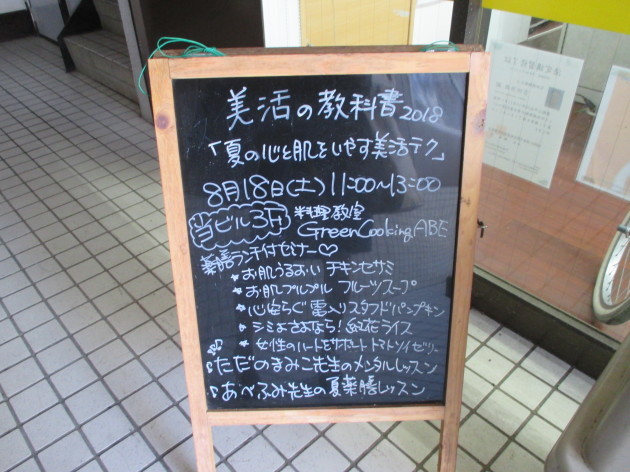 美活の教科書2018
「夏の心と肌をいやす美活テク」
8月18日(土) 11:00~13:00
当ビル3F 料理教室
GreenCooking ABE
薬膳ランチ付セミナー♡
★お肌うるおい チキンセサミ
★お肌プルプル フルーツスープ
★心安らぐ 雲入りスタフドパンプキン
★シミよさよなら! 紅花ライス
★女性のハートをサポート トマトソイゼリー
♪ただのまみこ先生のメンタルレッスン
♪あべふみ先生の夏薬膳レッスン